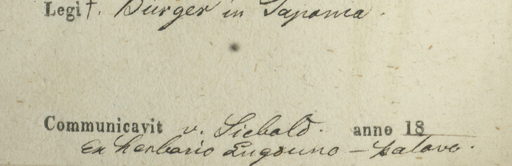 Legit. Bürger in Japonia.
Communicavit v. Siebold. anno 18
Ex herbario Lugduno-Batavo.